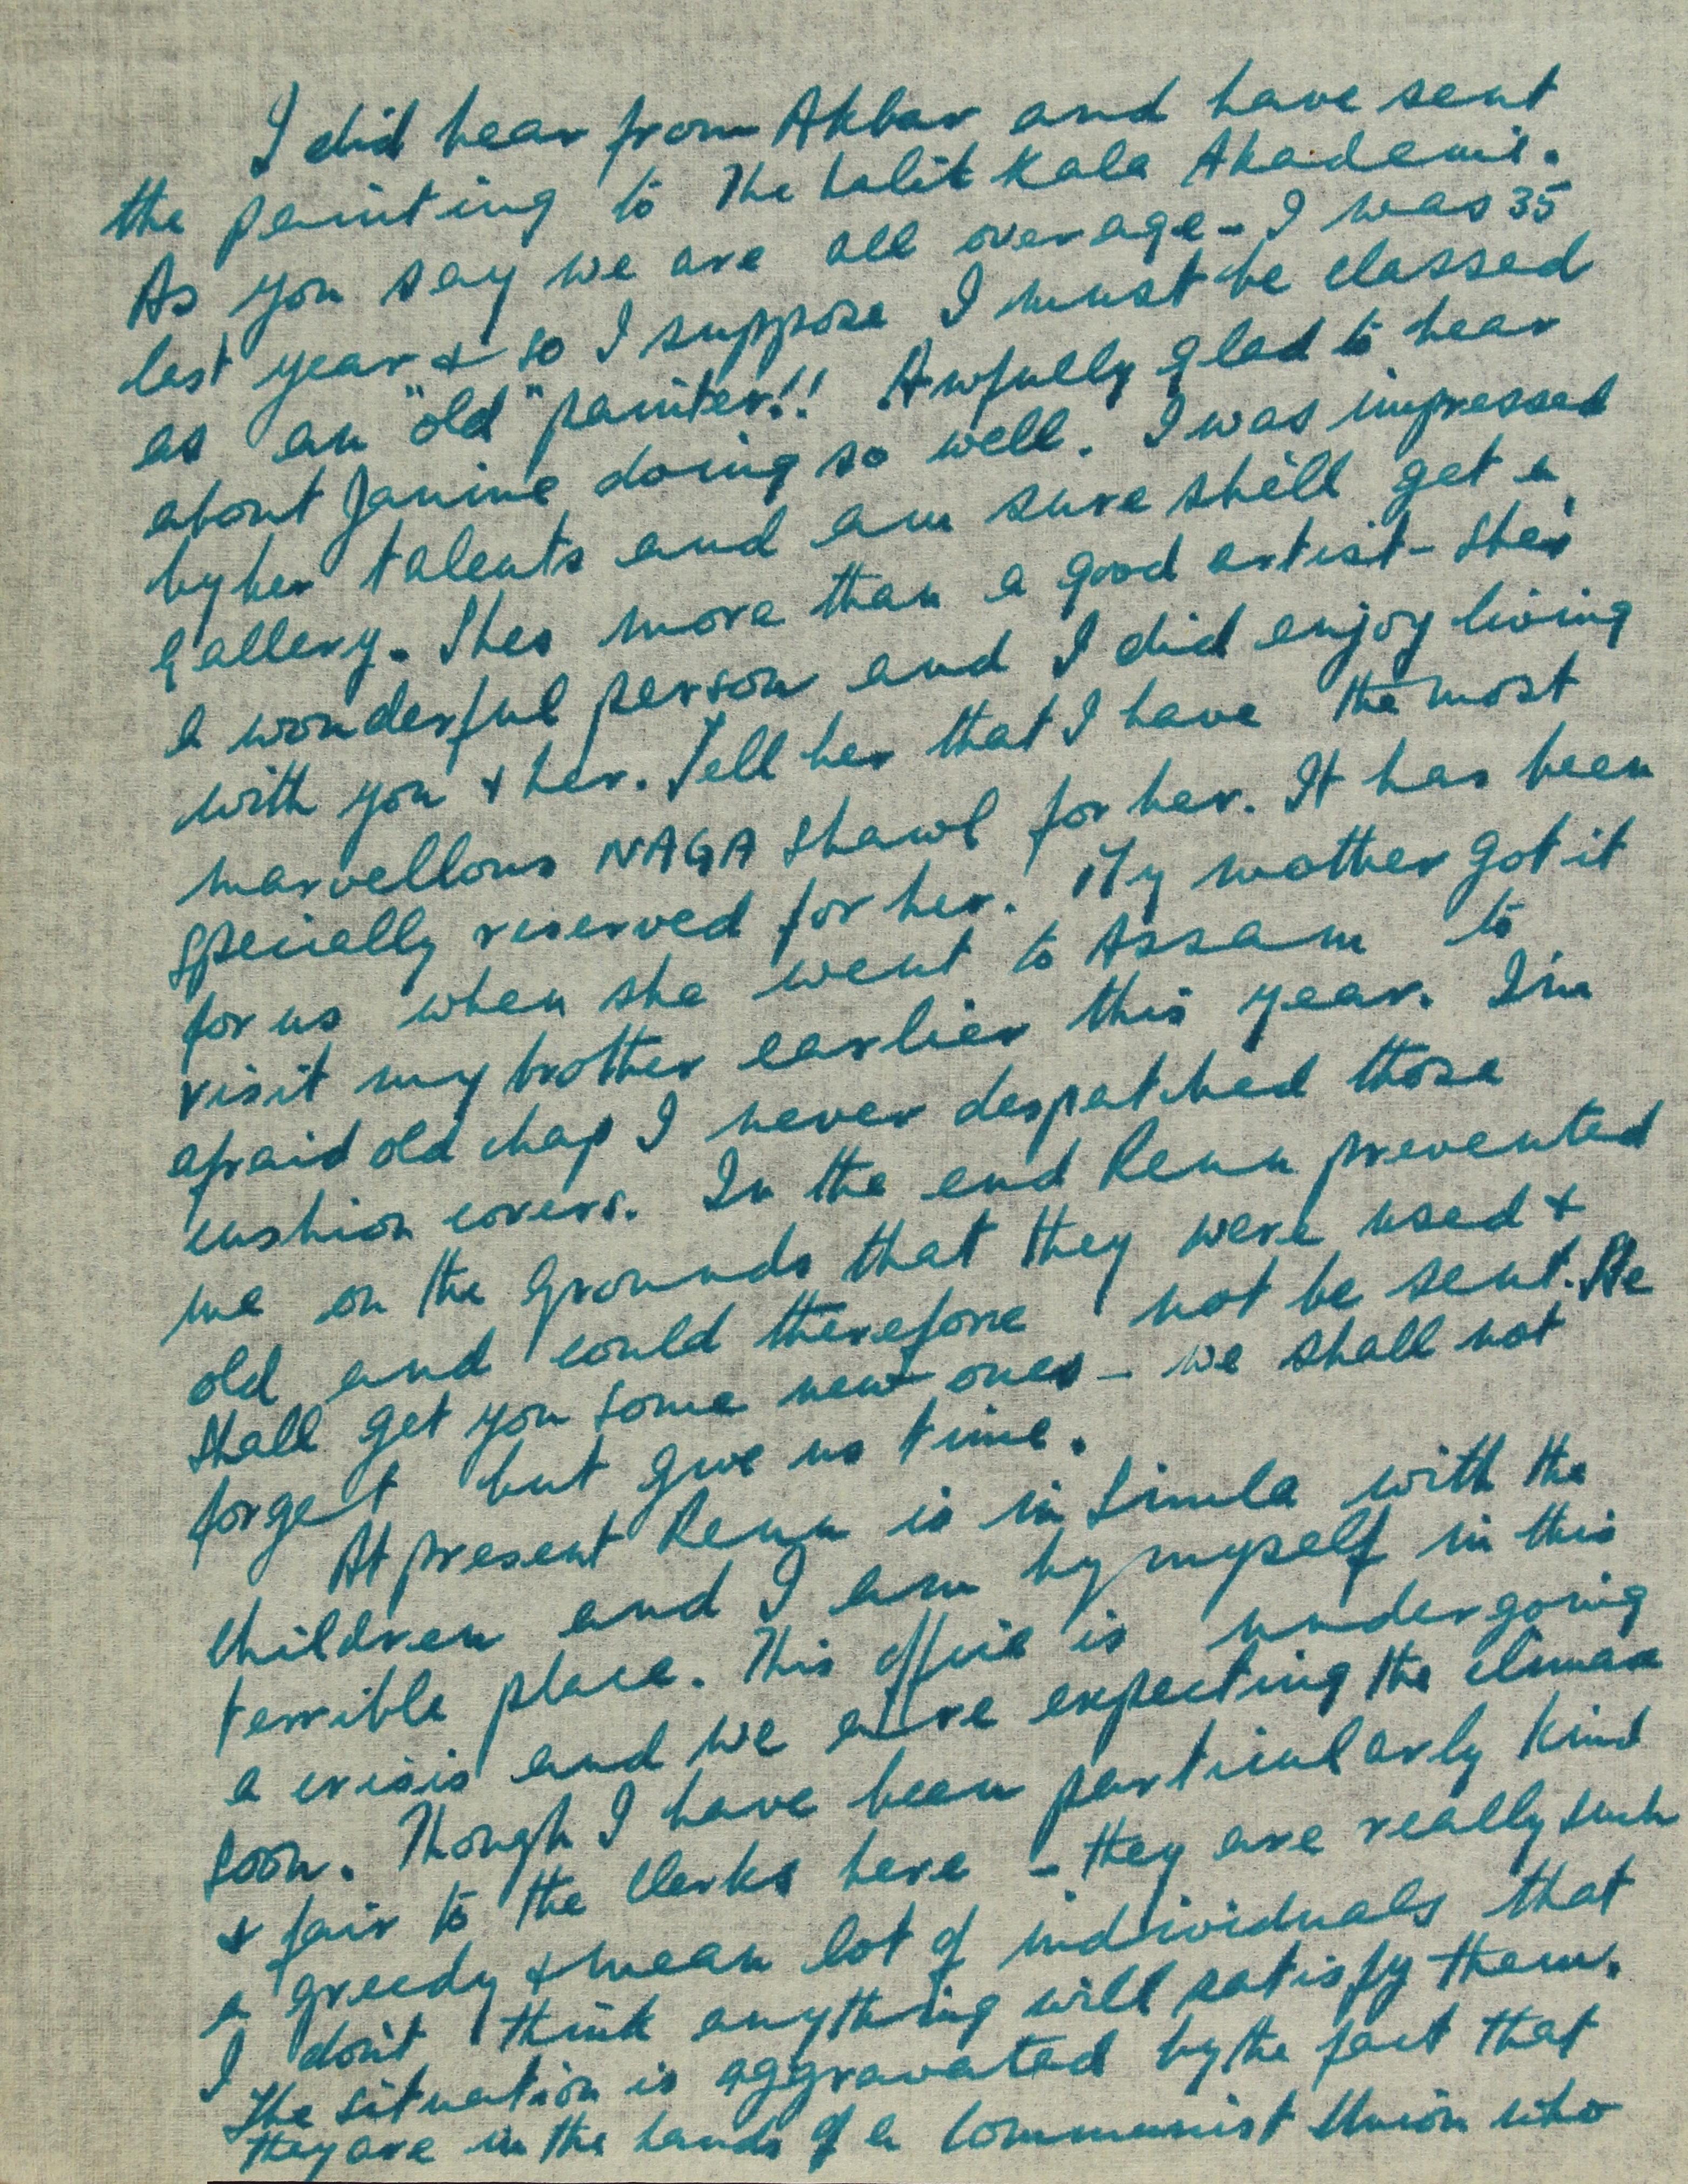 I did hear from Akbar and have sent
the painting to the Lalit Kala Akademi.
As you say we are all overage - I was 35
last year & so I suppose I must be classed
as an "old" painter!! Awfully glad to hear
about Janine doing so well. I was impressed
by her talents and am sure she'll get a
gallery. Shes more than a good artist - She's
a wonderful person and I did enjoy living
with you & her. Tell her that I have the most
marvellous NAGA shawl for her. It has been
specially reserved for her. My mother got it
for us when she went to Assam to
visit my brother earlier this year. I'm
afraid old chap I never despatched those
cushion covers. In the end Renu prevented
me on the grounds that they were used &
old and could therefore not be sent. We
shall get you some new ones - we shall not
forget but give us time.
At present Renu is in Simla with the
children and I am by myself in this
terrible place. This office is undergoing
a crisis and we are expecting the climax
soon. Though I have been particularly kind
& fair to the clerks here - they are really such
a greedy & mean lot of individuals that
I don't think anything will satisfy them.
The situation is aggravated by the fact that
they are in the hands of a Communist Union who